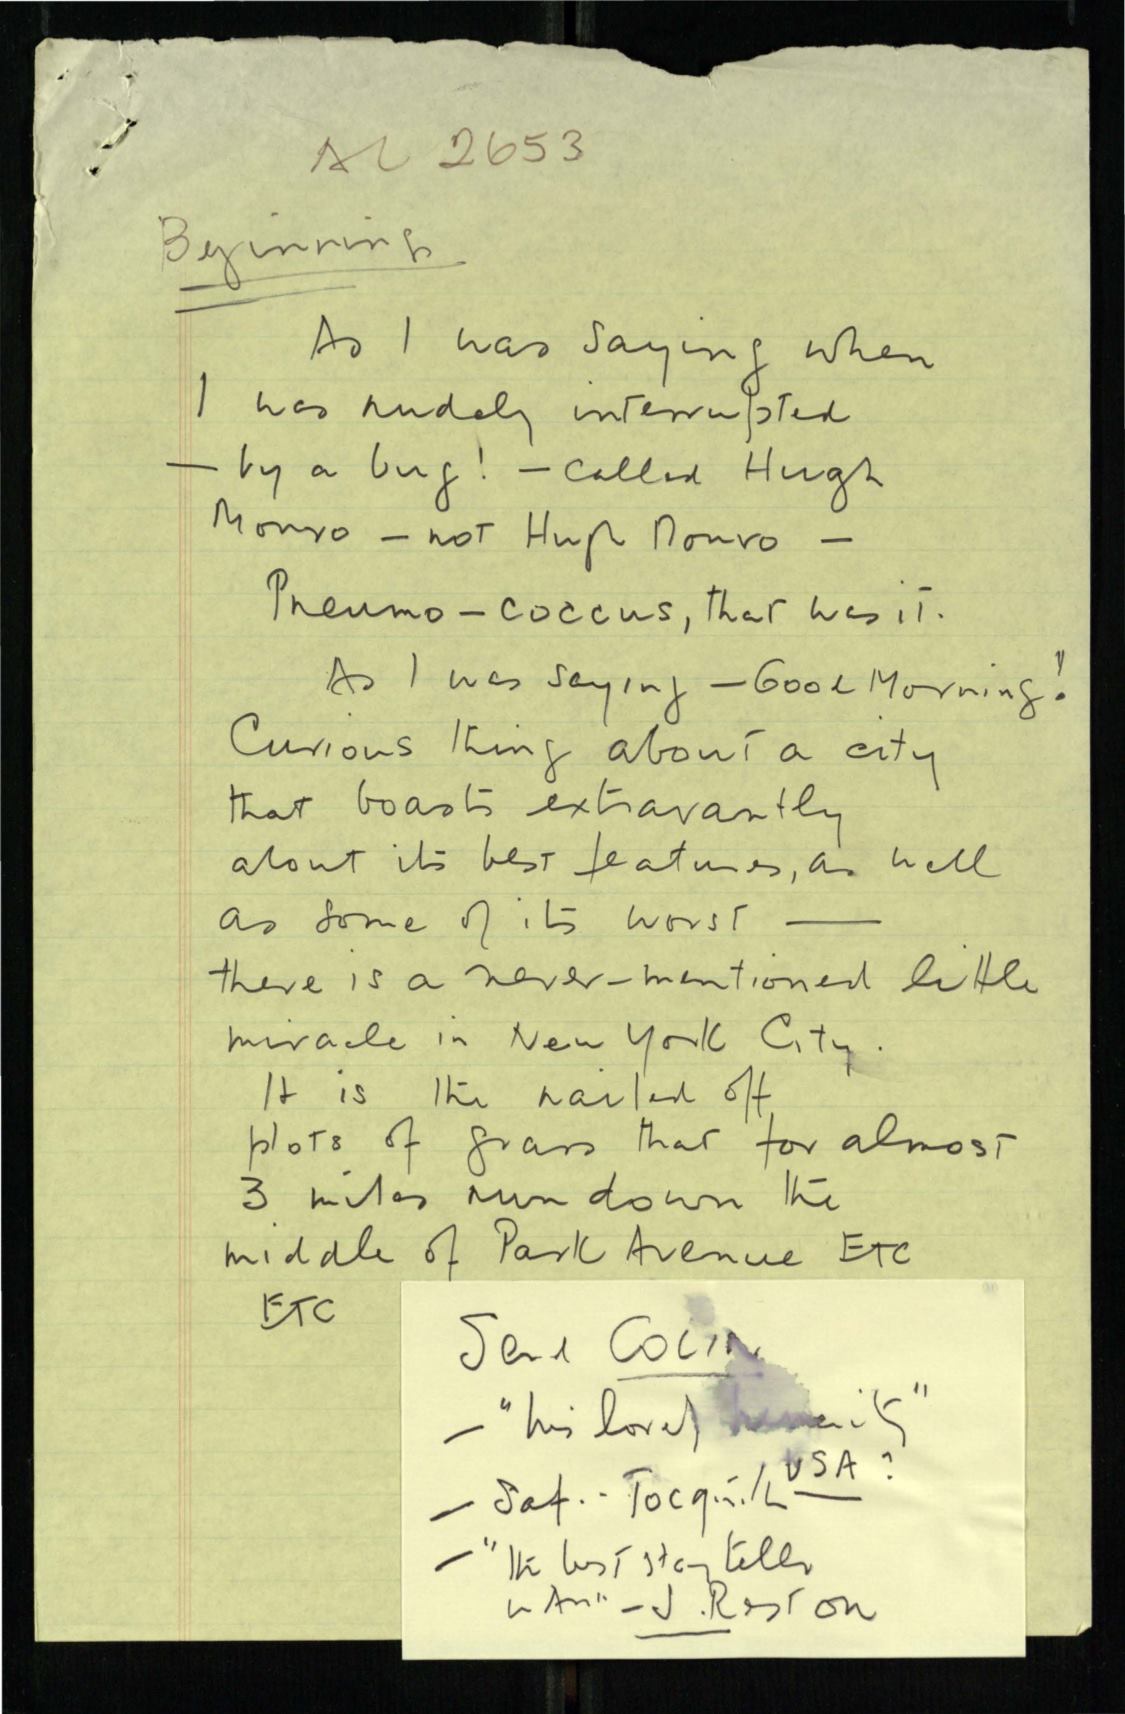 AL 2653
Beginning
As I was saying when
I was rudely interrupted
— by a bug! — called Hugh
Monro — not Hugh Monro —
Pneumo-coccus, that was it.
As I was saying — Good Morning!
Curious thing about a city
that boasts extravantly
about its best features, as well
as some of its worst —
there is a never-mentioned little
miracle in New York City.
It is the railed off
plots of grass that for almost
3 miles run down the
middle of Park Avenue ETC
ETC
Send COLIN
— "his lovely humanity"
— Sat. - USA?
— "the best story teller
in Am" — J. Reston